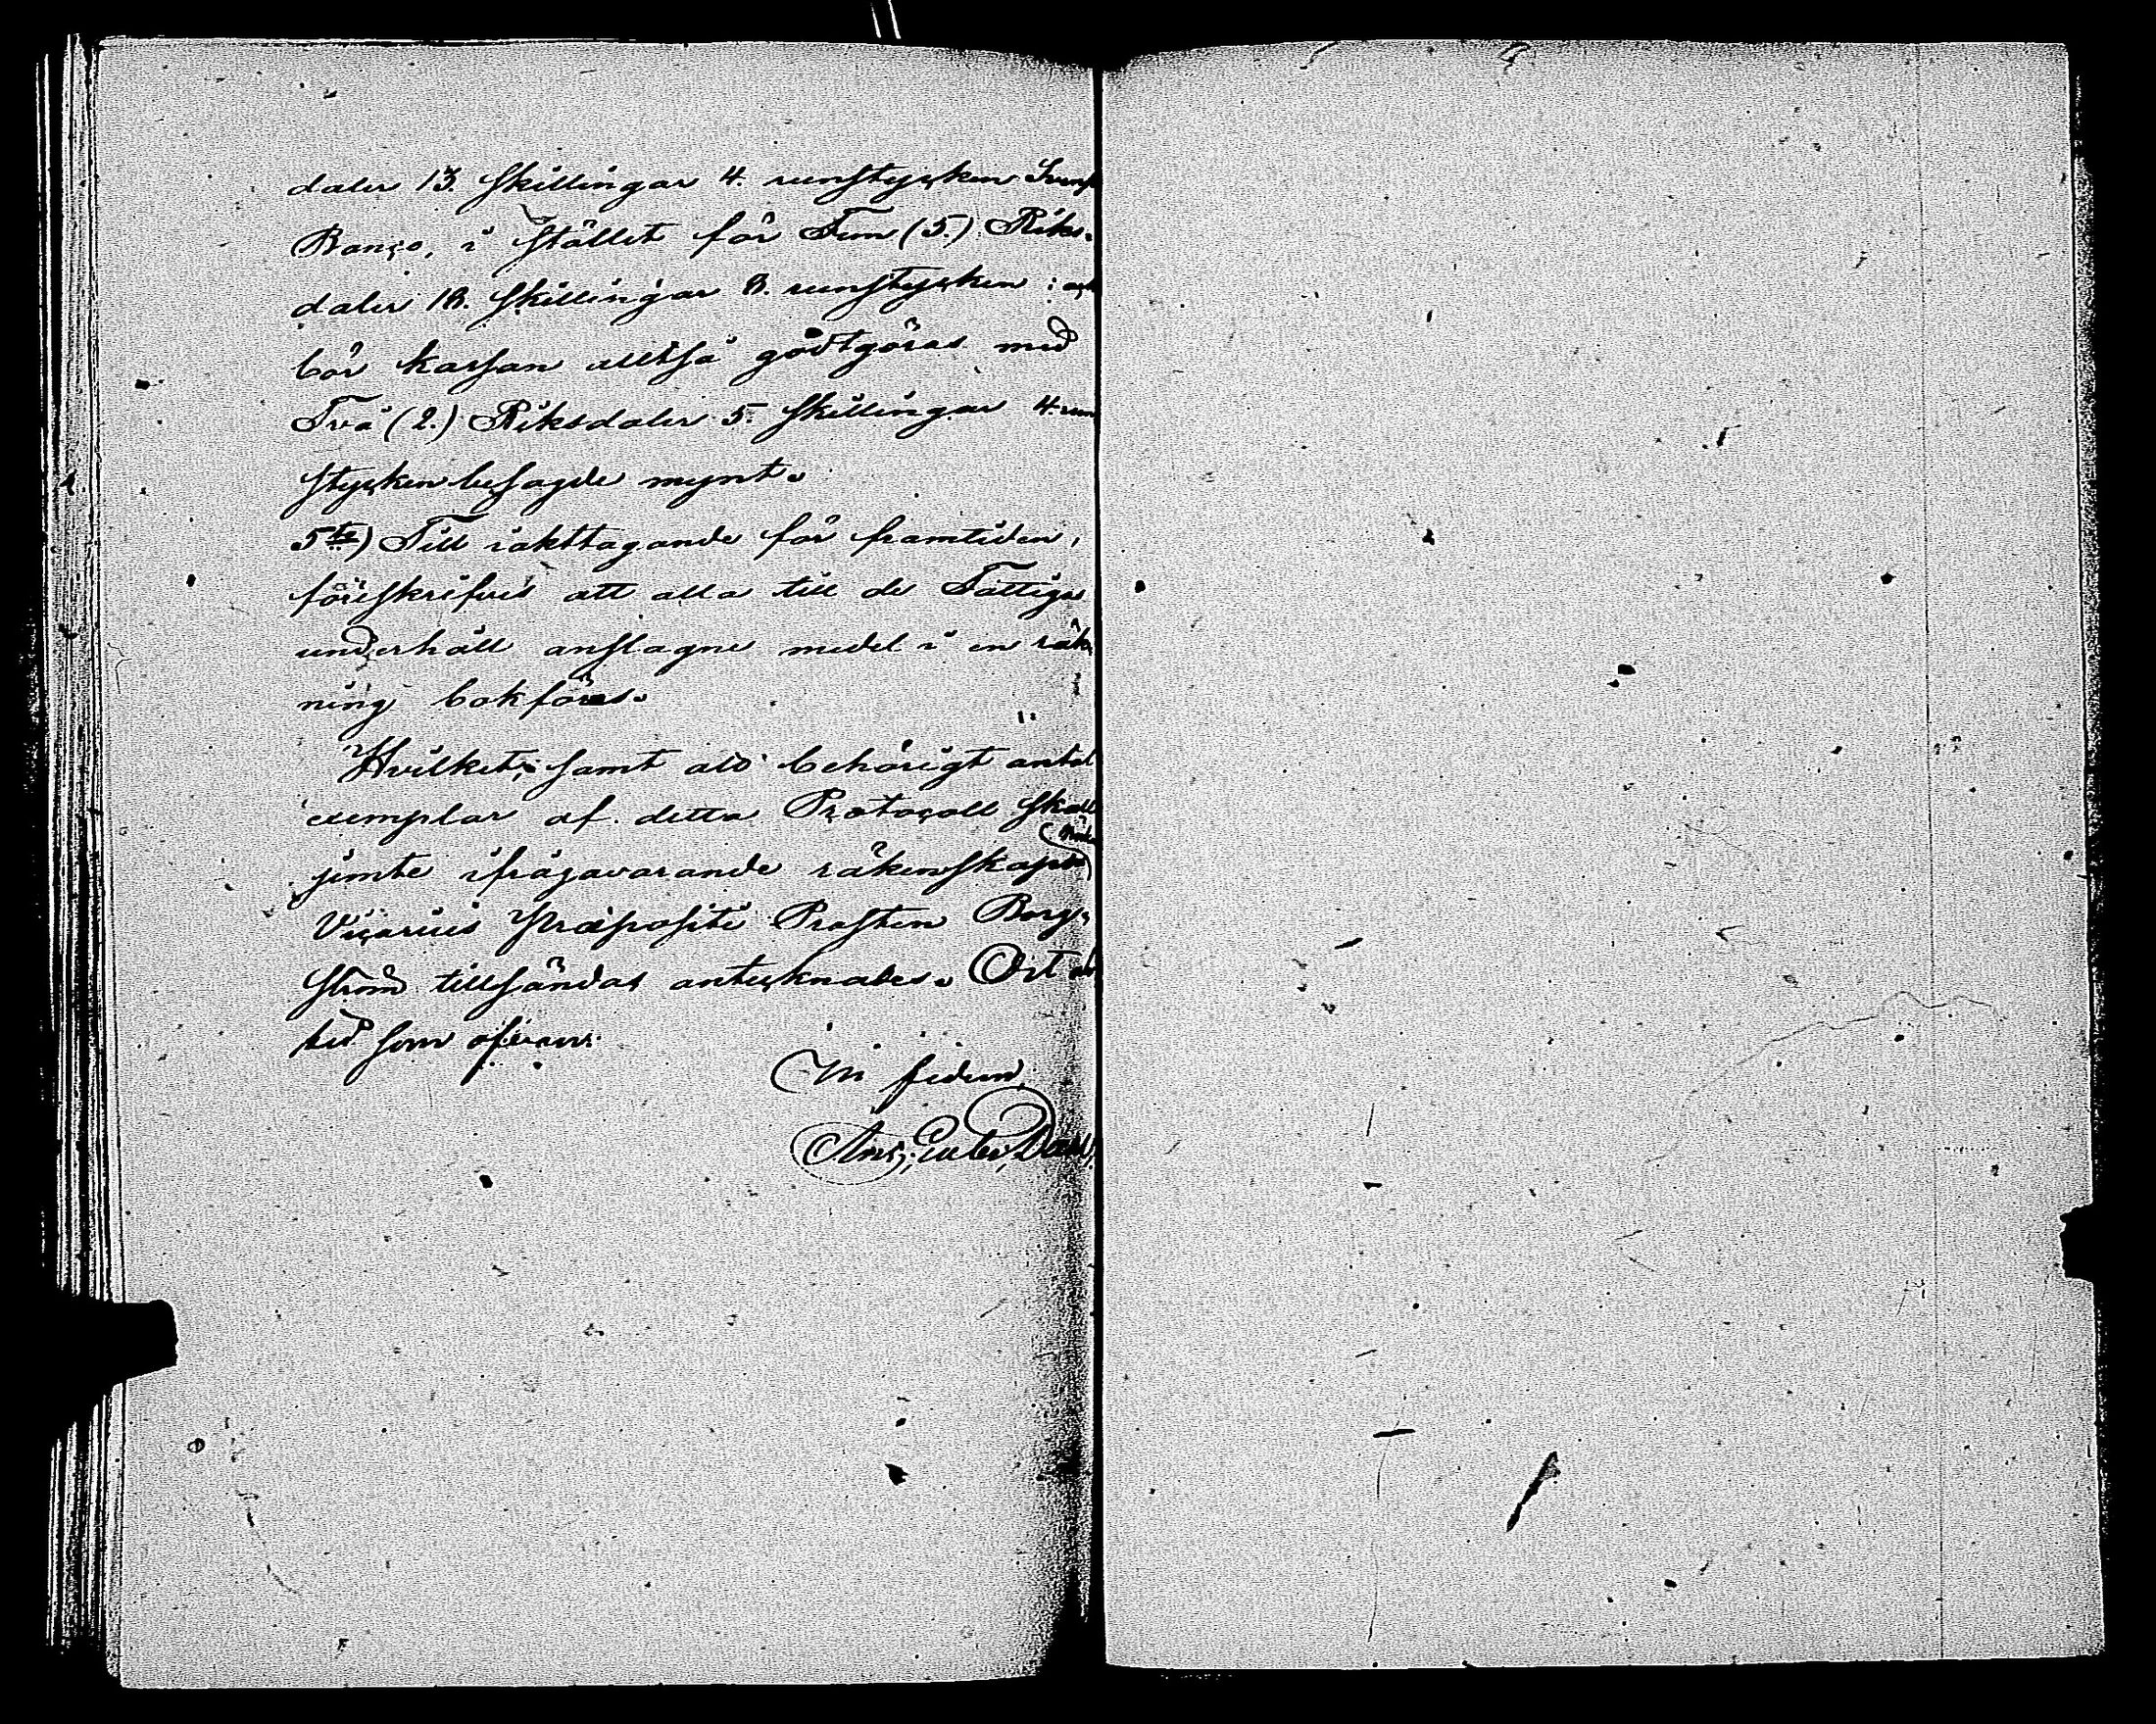 daler 13. skillingar 4. runstycken Svensk
Banco, i stället för Fem (5.) Riks-
daler 18. skillingar 8. runstycken: och
bör kassan alltså godtgöras med
Två (2.) Riksdaler 5. skillingar 4. run
stycken besagde mynt.
5te) Till iakttagande för framtiden,
föreskrifves att alla till de Fattigas
underhåll anslagne medel i en räk
ning bokföras.
Hvilket, samt att behörigt antal
exemplar af detta Protocoll skall
jemte ifrågavarande räkenskaper
Vicarius Præpositi Prosten Borg-
ström tillsändas antecknades. Ort och
tid som ofvan.
In fidem